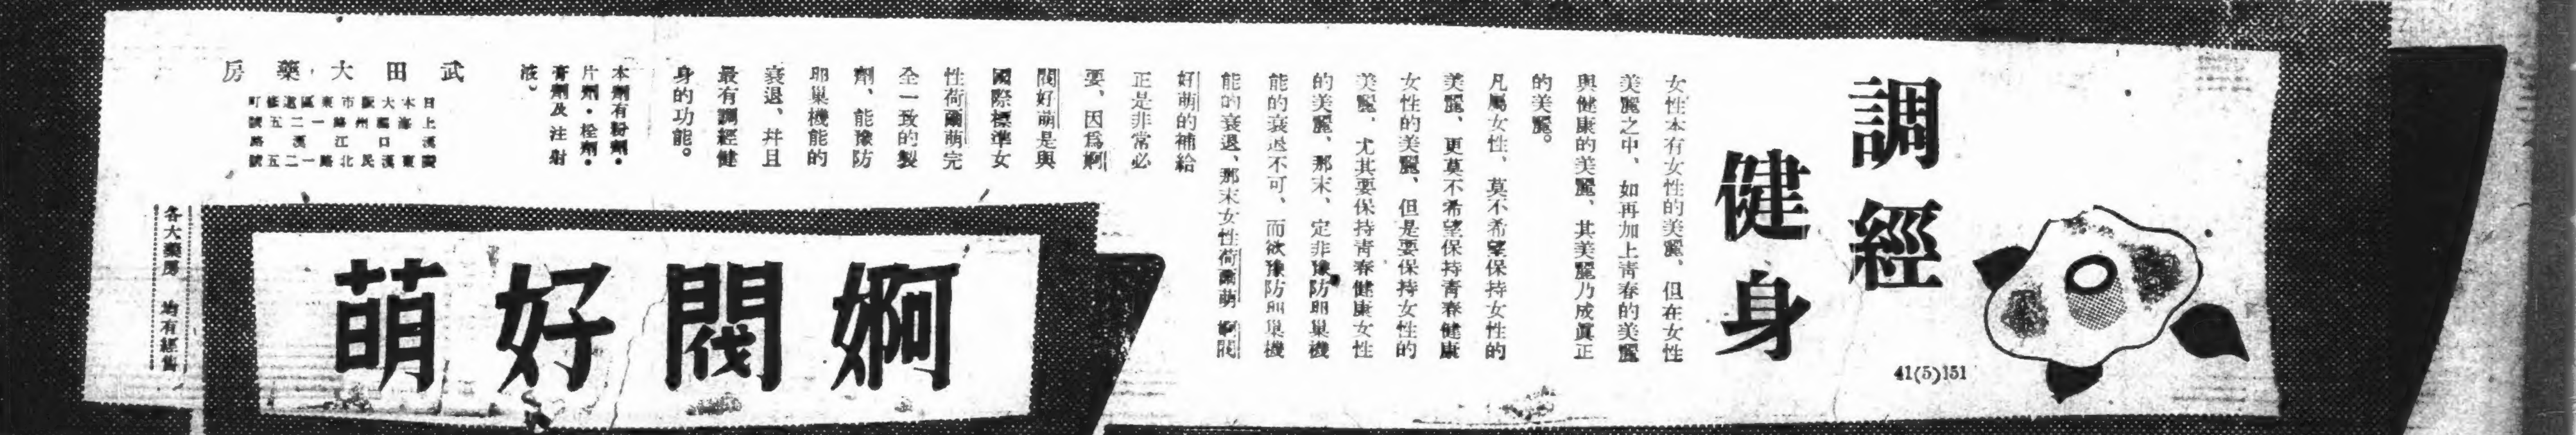 調經
健身
女性本有女性的美麗、但在女性
美麗之中、如再加上青春的美麗
與健康的美麗、其美麗乃成眞正
的美麗。
凡屬女性、莫不希望保持女性的
美麗、更莫不希望保持青春健康
女性的美麗、但是要保持女性的
美麗、尤其要保持青春健康女性
的美麗、那末、定非豫防卵巢機
能的衰退不可、而欲豫防卵巢機
能的衰退、那末女性荷爾萌 婀閥
好萌的補給
正是非常必
要、因爲婀
閥好萌是與
國際標準女
性荷爾萌完
全一致的製
劑、能豫防
卵巢機能的
衰退、幷且
最有調經健
身的功能。
本劑有粉劑・
片劑・栓劑・
膏劑及注射
液。
武田大藥房
日本大阪市東區道修町
上海
漢口
各大藥房 均有經售
婀閥好萌
41(5)151